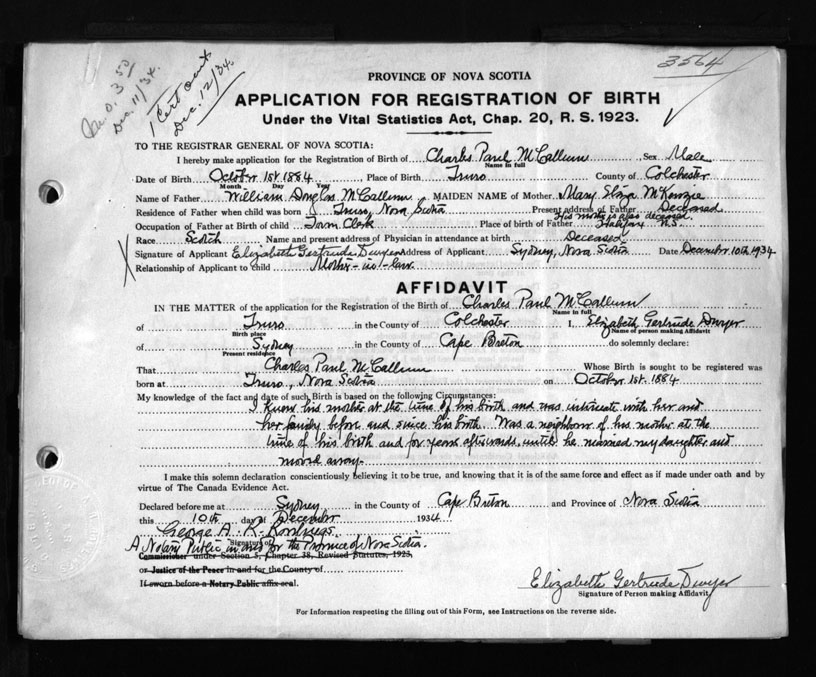 M.O. 3.50
Dec. 11/34.
1 Cert out
Dec. 12/34.
3564
PROVINCE OF NOVA SCOTIA
APPLICATION FOR REGISTRATION OF BIRTH
Under the Vital Statistics Act, Chap. 20, R. S. 1923.
TO THE REGISTRAR GENERAL OF NOVA SCOTIA:
I hereby make application for the Registration of Birth of Charles Paul McCallum Sex Male
Name in full
Date of Birth October 1st 1884 Place of Birth Truro County of Colchester
Month Day Year
Name of Father William Douglas McCallum MAIDEN NAME of Mother Mary Eliza McKenzie
Residence of Father when child was born Truro, Nova Scotia Present address of Father Deceased
His mother is also deceased.
Occupation of Father at Birth of child Town Clerk Place of birth of Father Halifax N.S.
Race Scotch Name and present address of Physician in attendance at birth Deceased
Signature of Applicant Elizabeth Gertrude Dwyer Address of Applicant Sydney, Nova Scotia Date December 10th 1934
Relationship of Applicant to child Mother-in-law
X
AFFIDAVIT
IN THE MATTER of the application for the Registration of the Birth of Charles Paul McCallum
Name in full
of Truro in the County of Colchester I, Elizabeth Gertrude Dwyer
Birth place Name of person making Affidavit
of Sydney in the County of Cape Breton do solemnly declare:
Present residence
That Charles Paul McCallum Whose Birth is sought to be registered was
born at Truro, Nova Scotia on October 1st. 1884
My knowledge of the fact and date of such Birth is based on the following Circumstances:
I know his mother at the time of his birth and was intimate with her and
her family before and since his birth. Was a neighbour of his mother at the
time of his birth and for years afterwards until he married my daughter and
moved away.
I make this solemn declaration conscientiously believing it to be true, and knowing that it is of the same force and effect as if made under oath and by
virtue of The Canada Evidence Act.
Declared before me at Sydney in the County of Cape Breton and Province of Nova Scotia
this 10th day of December 1934
George A. R.
Signature of
A Notary Public in and for the Province of Nova Scotia.
Commissioner under Section 5, Chapter 38, Revised Statutes, 1923,
or Justice of the Peace in and for the County of
If sworn before a Notary Public affix seal.
Elizabeth Gertrude Dwyer
Signature of Person making Affidavit
For Information respecting the filling out of this Form, see Instructions on the reverse side.